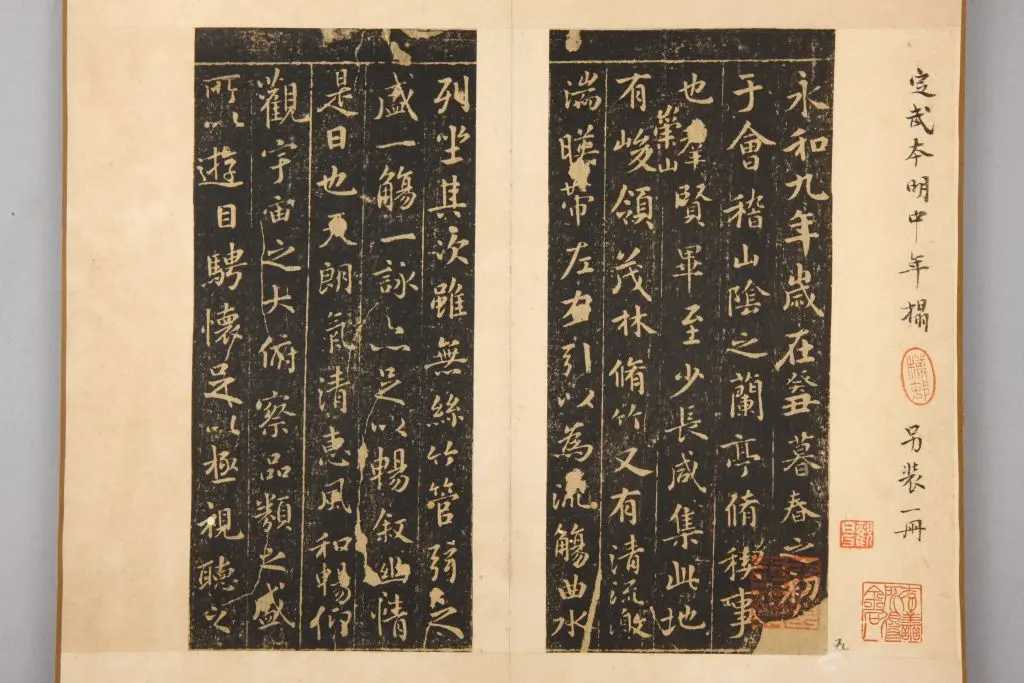 定武本明中年搨
另裝一冊
永和九年歲在癸丑暮春之初
于會稽山陰之蘭亭脩稧事
也羣賢畢至少長咸集此地
崇山
有峻領茂林脩竹又有清流激
湍暎帶左右引以為流觴曲水
列坐其次雖無絲竹管弦之
盛一觴一詠亦足以暢叙幽情
是日也天朗氣清惠風和暢仰
觀宇宙之大俯察品類之盛
所以遊目騁懷足以極視聽之